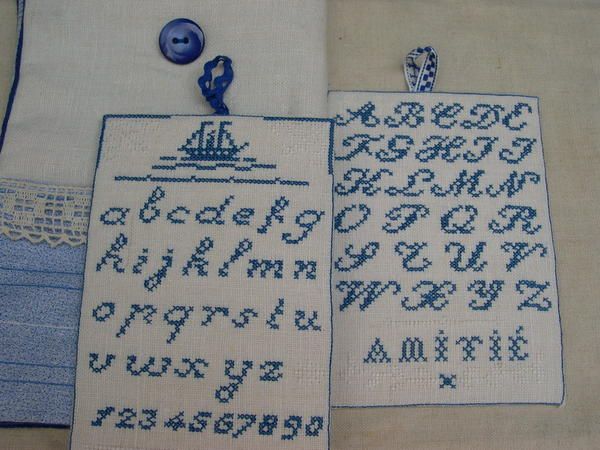 a b c d e f g
h i j k l m n
o p q r s t u
v w x y z
1 2 3 4 5 6 7 8 9 0
A B C D E
F G H I J
K L M N
O P Q R
S T U V
W X Y Z
AMITIÉ